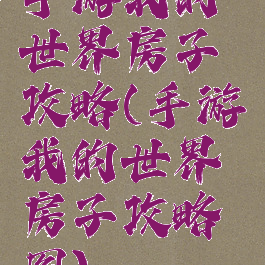 手游我的
世界房子
攻略(手游
我的世界
房子攻略
图)